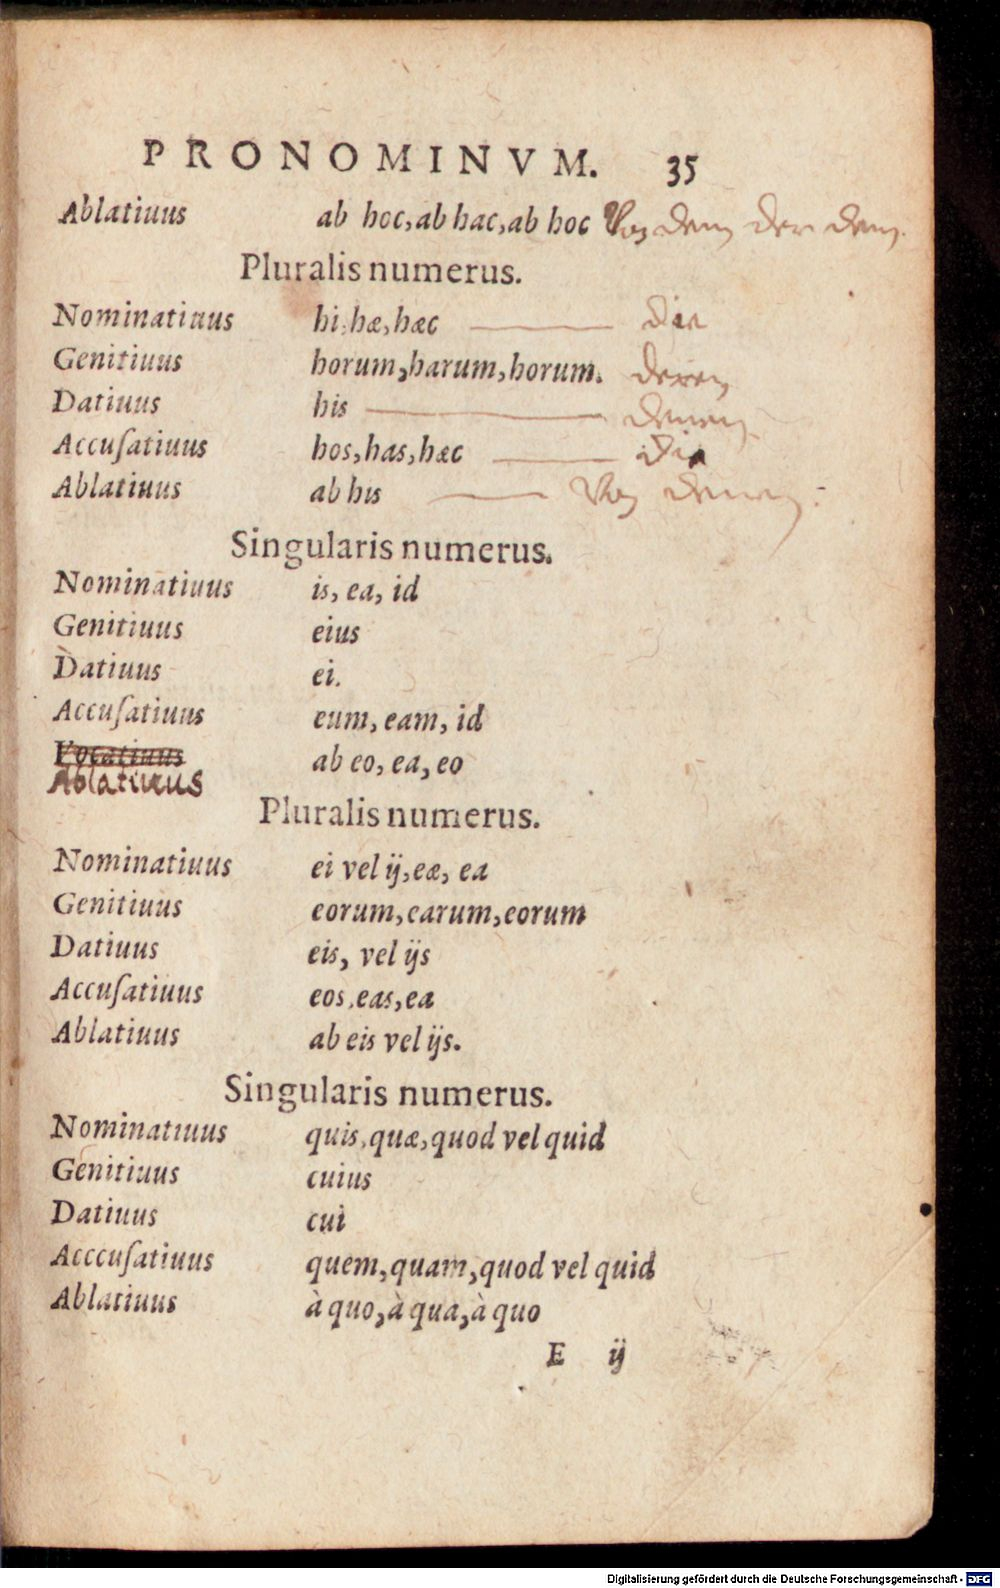 PRONOMINVM. 35
Ablatiuus ab hoc, ab hac, ab hoc Von dem der dem.
Pluralis numerus.
Nominatiuus hi, hæ, hæc die
Genitiuus horum, harum, horum. deren
Datiuus his denen
Accuſatiuus hos, has, hæc die
Ablatiuus ab his Von denen
Singularis numerus.
Nominatiuus is, ea, id
Genitiuus eius
Datiuus ei.
Accuſatiuus eum, eam, id
Vocatiuus ab eo, ea, eo
Ablatiuus
Pluralis numerus.
Nominatiuus ei vel ij, eæ, ea
Genitiuus eorum, earum, eorum
Datiuus eis, vel ijs
Accuſatiuus eos, eas, ea
Ablatiuus ab eis vel ijs.
Singularis numerus.
Nominatiuus quis, quæ, quod vel quid
Genitiuus cuius
Datiuus cui
Acccuſatiuus quem, quam, quod vel quid
Ablatiuus à quo, à qua, à quo
E ij
Digitalisierung gefördert durch die Deutsche Forschungsgemeinschaft - DFG